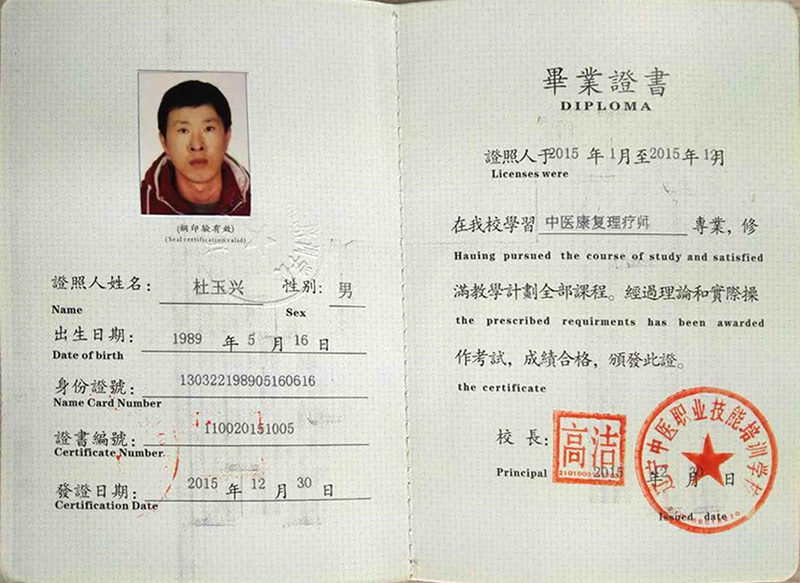 (鋼印驗有效)
(Seal certification valid)
證照人姓名: 杜玉兴 性别: 男
Name Sex
出生日期: 1989 年 5 月 16 日
Date of birth
身份證號: 130322198905160616
Name Card Number
證書編號: 110020151005
Certificate Number
發證日期: 2015 年 12 月 30 日
Certification Date
畢業證書
DIPLOMA
證照人于2015 年 1月至2015年 12月
Licenses were
在我校學習 中医康复理疗师 專業,修
Hauing pursued the course of study and satisfied
滿教學計劃全部課程。經過理論和實際操
the prescribed requirments has been awarded
作考試,成績合格,頒發此證。
the certificate
校 長: 高洁
Principal 2015 年 12 月 30 日
Issued date
中医职业技能培训学校